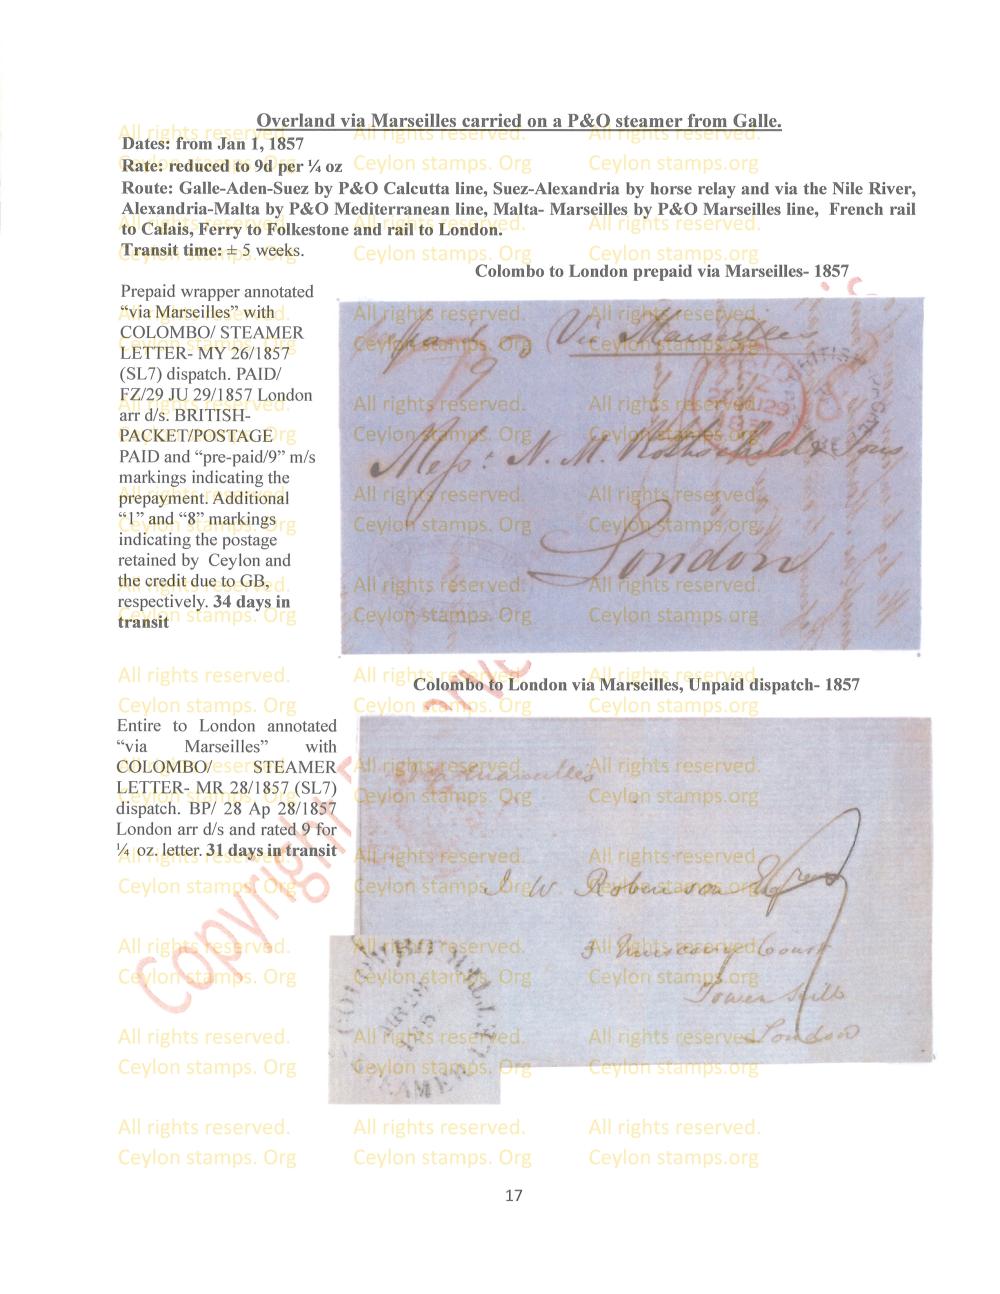 Overland via Marseilles carried on a P&O steamer from Galle.
Dates: from Jan 1, 1857
Rate: reduced to 9d per ¼ oz
Route: Galle-Aden-Suez by P&O Calcutta line, Suez-Alexandria by horse relay and via the Nile River,
Alexandria-Malta by P&O Mediterranean line, Malta- Marseilles by P&O Marseilles line, French rail
to Calais, Ferry to Folkestone and rail to London.
Transit time: ± 5 weeks.
Colombo to London prepaid via Marseilles- 1857
Prepaid wrapper annotated
“via Marseilles” with
COLOMBO/ STEAMER
LETTER- MY 26/1857
(SL7) dispatch. PAID/
FZ/29 JU 29/1857 London
arr d/s. BRITISH-
PACKET/POSTAGE
PAID and “pre-paid/9” m/s
markings indicating the
prepayment. Additional
“1” and “8” markings
indicating the postage
retained by Ceylon and
the credit due to GB,
respectively. 34 days in
transit
Via Marseilles
Messrs: N. M. Rothschild & Sons
London
Colombo to London via Marseilles, Unpaid dispatch- 1857
Entire to London annotated
“via Marseilles” with
COLOMBO/ STEAMER
LETTER- MR 28/1857 (SL7)
dispatch. BP/ 28 Ap 28/1857
London arr d/s and rated 9 for
¼ oz. letter. 31 days in transit
via Marseilles
J W. Robinson Esqre
3 Muscovy Court
Tower Hill
London
All rights reserved.
Ceylon stamps. Org
Ceylon stamps.org
Copyright
17